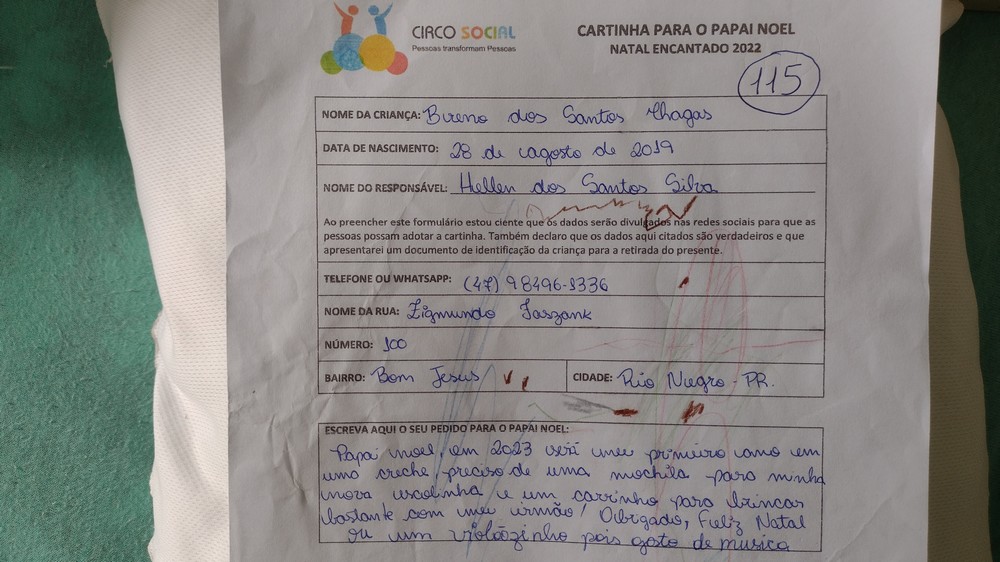 CIRCO SOCIAL
Pessoas transformam Pessoas
CARTINHA PARA O PAPAI NOEL
NATAL ENCANTADO 2022
115
NOME DA CRIANÇA: Breno dos Santos Chagas
DATA DE NASCIMENTO: 28 de agosto de 2019
NOME DO RESPONSÁVEL: Hellen dos Santos Silva
Ao preencher este formulário estou ciente que os dados serão divulgados nas redes sociais para que as
pessoas possam adotar a cartinha. Também declaro que os dados aqui citados são verdadeiros e que
apresentarei um documento de identificação da criança para a retirada do presente.
TELEFONE OU WHATSAPP: (47) 98496-3336
NOME DA RUA: Zigmundo
NÚMERO: 100
BAIRRO: Bom Jesus
CIDADE: Rio Negro - PR.
ESCREVA AQUI O SEU PEDIDO PARA O PAPAI NOEL:
Papai noel, em 2023 será meu primeiro ano em
uma creche, preciso de uma mochila para minha
nova escolinha e um carrinho para brincar
bastante com meu irmão! Obrigado, Feliz Natal
ou um violãozinho pois gosto de musica